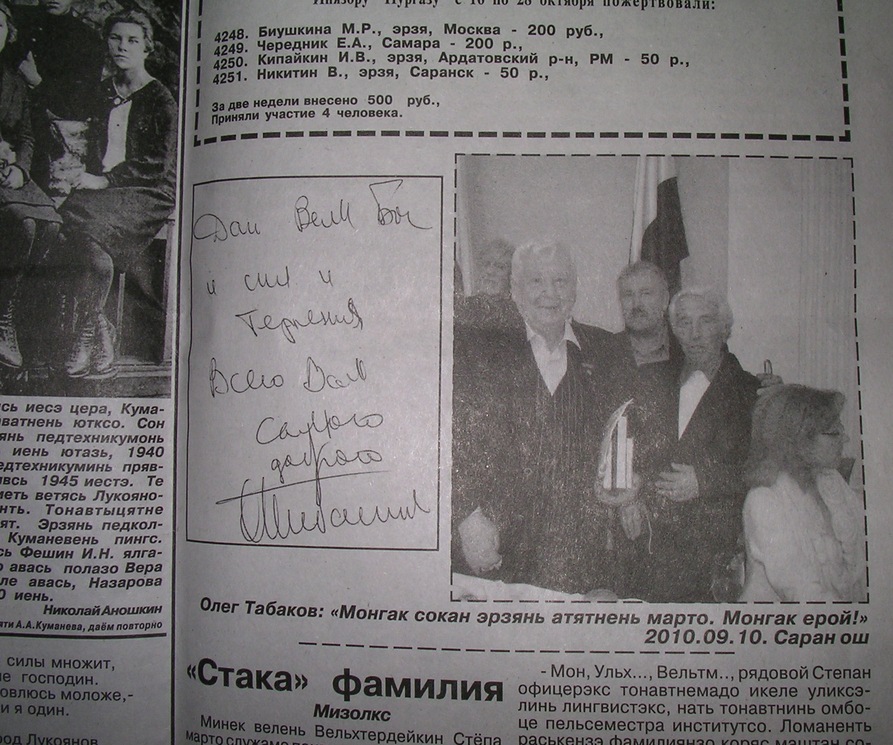 Инязору Пургазу с 16 по 28 октября пожертвовали:
4248. Биушкина М.Р., эрзя, Москва - 200 руб.,
4249. Чередник Е.А., Самара - 200 р.,
4250. Кипайкин И.В., эрзя, Ардатовский р-н, РМ - 50 р.,
4251. Никитин В., эрзя, Саранск - 50 р.,
За две недели внесено 500 руб.,
Приняли участие 4 человека.
Дай Вам Бог
и сил и
терпения
Всего Вам
самого
доброго
сь иесэ цера, Кума-
ватнень ютксо. Сон
янь педтехникумонь
иень ютазь, 1940
едтехникуминь пряв-
ивсь 1945 иестэ. Те
меть ветясь Лукояно-
нть. Тонавтыцятне
ят. Эрзянь педкол-
Куманевень пингс.
сь Фешин И.Н. ялга-
о авась полазо Вера
ле авась, Назарова
0 иень.
Николай Аношкин
яти А.А.Куманева, даём повторно
Олег Табаков: «Монгак сокан эрзянь атятнень марто. Монгак ерой!»
2010.09.10. Саран ош
силы множит,
е господин.
овлюсь моложе,-
и я один.
род Лукоянов
«Стака» фамилия
Мизолкс
Минек велень Вельхтердейкин Стёпа
марто служамо
- Мон, Ульх..., Вельтм.., рядовой Степан
офицерэкс тонавтнемадо икеле уликсэ-
линь лингвистэкс, нать тонавтнинь омбо-
це пельсеместра институтсо. Ломаненть
раськензэ фамилиянзо коряс маштан со-